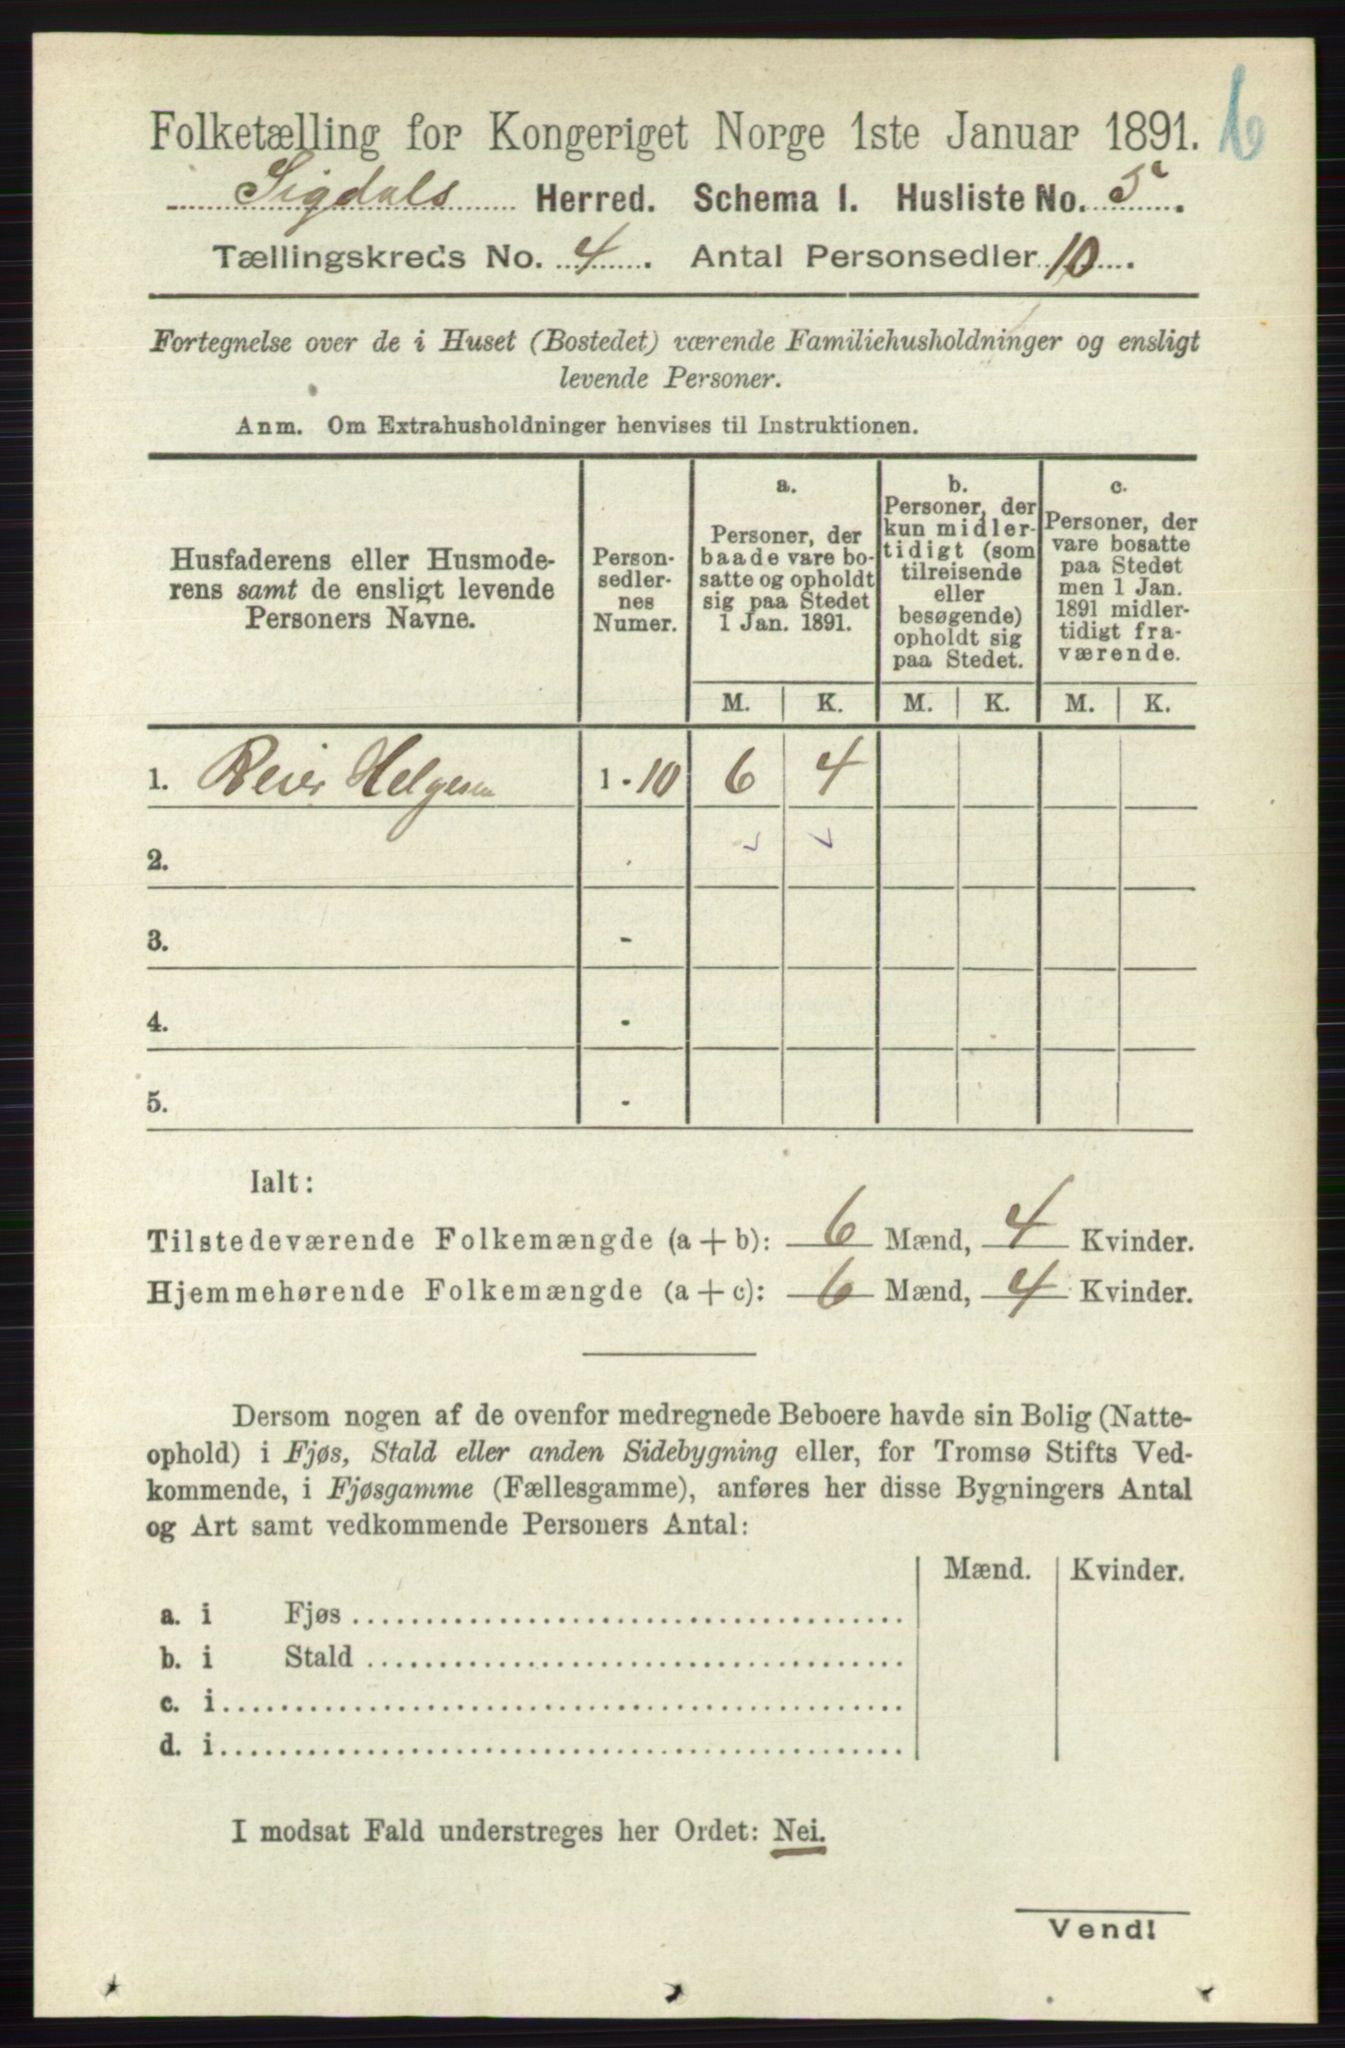 6
Folketælling for Kongeriget Norge 1ste Januar 1891.
Sigdals Herred. Schema I. Husliste No. 5.
Tællingskreds No. 4. Antal Personsedler 10.
Fortegnelse over de i Huset (Bostedet) værende Familiehusholdninger og ensligt
levende Personer.
Anm. Om Extrahusholdninger henvises til Instruktionen.
Husfaderens eller Husmode-
rens samt de ensligt levende
Personers Navne.
Person-
sedler-
nes
Numer.
a.
Personer, der
baade vare bo-
satte og opholdt
sig paa Stedet
1 Jan. 1891.
b.
Personer, der
kun midler-
tidigt (som
tilreisende
eller
besøgende)
opholdt sig
paa Stedet.
c.
Personer, der
vare bosatte
paa Stedet
men 1 Jan.
1891 midler-
tidigt fra-
værende.
M. K. M. K. M. K.
1. Reier Helgesen 1 - 10 6 4
2. -
3. -
4. -
5. -
Ialt:
Tilstedeværende Folkemængde (a + b): 6 Mænd, 4 Kvinder.
Hjemmehørende Folkemængde (a + c): 6 Mænd, 4 Kvinder.
Dersom nogen af de ovenfor medregnede Beboere havde sin Bolig (Natte-
ophold) i Fjøs, Stald eller anden Sidebygning eller, for Tromsø Stifts Ved-
kommende, i Fjøsgamme (Fællesgamme), anføres her disse Bygningers Antal
og Art samt vedkommende Personers Antal:
Mænd. Kvinder.
a. i Fjøs
b. i Stald
c. i
d. i
I modsat Fald understreges her Ordet: Nei.
Vend!